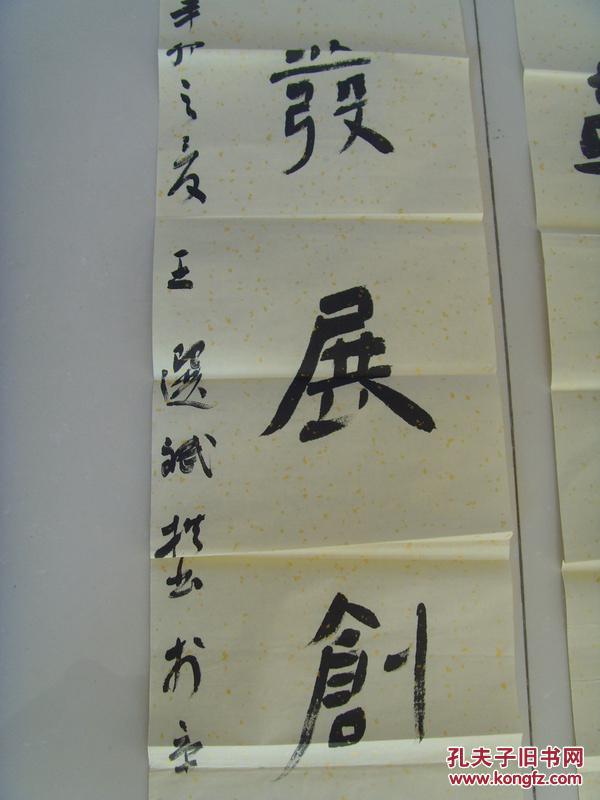 發展創
辛卯之夏王選斌拙書於京
孔夫子旧书网
www.kongfz.com